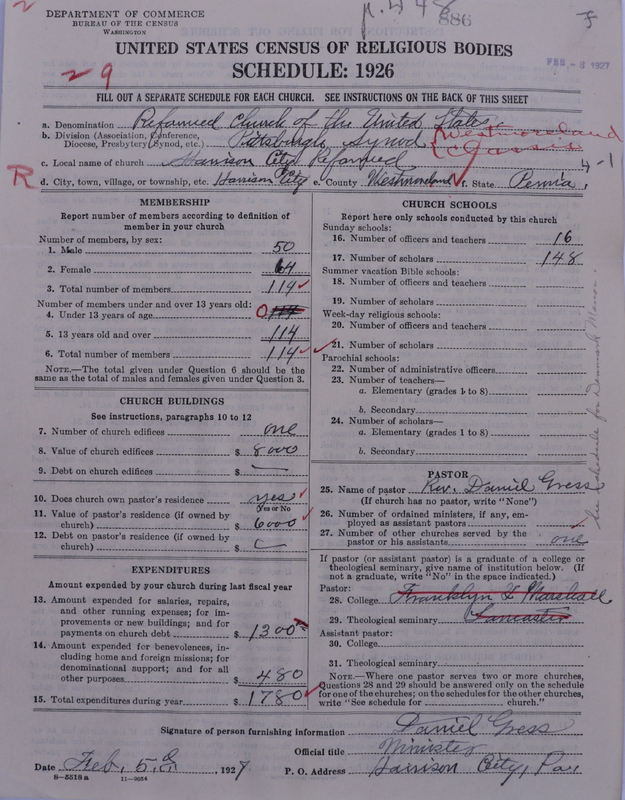 p. 448
886
DEPARTMENT OF COMMERCE
BUREAU OF THE CENSUS
WASHINGTON
UNITED STATES CENSUS OF RELIGIOUS BODIES
FEB -8 1927
29
SCHEDULE: 1926
FILL OUT A SEPARATE SCHEDULE FOR EACH CHURCH. SEE INSTRUCTIONS ON THE BACK OF THIS SHEET
a. Denomination Reformed Church of the United States
b. Division (Association, Conference, Diocese, Presbytery, Synod, etc.) Pittsburgh Synod (Westmoreland Classis
c. Local name of church Harrison City Reformed 4-1
R d. City, town, village, or township, etc. Harrison City e. County Westmoreland f. State Penna.
MEMBERSHIP
Report number of members according to definition of
member in your church
Number of members, by sex:
1. Male 50
2. Female 64
3. Total number of members 114
Number of members under and over 13 years old:
4. Under 13 years of age 0
5. 13 years old and over 114
6. Total number of members 114
NOTE.—The total given under Question 6 should be
same as the total of males and females given under Question 3.
CHURCH BUILDINGS
See instructions, paragraphs 10 to 12
7. Number of church edifices one
8. Value of church edifices $ 8000
9. Debt on church edifices $ —
10. Does church own pastor's residence yes
(Yes or No)
11. Value of pastor's residence (if owned by
church) $ 6000
12. Debt on pastor's residence (if owned by
church) $
EXPENDITURES
Amount expended by your church during last fiscal year
13. Amount expended for salaries, repairs,
and other running expenses; for im-
provements or new buildings; and for
payments on church debt $ 1300
14. Amount expended for benevolences, in-
cluding home and foreign missions; for
denominational support; and for all
other purposes $ 480
15. Total expenditures during year $ 1780
CHURCH SCHOOLS
Report here only schools conducted by this church
Sunday schools:
16. Number of officers and teachers 16
17. Number of scholars 148
Summer vacation Bible schools:
18. Number of officers and teachers
19. Number of scholars
Week-day religious schools:
20. Number of officers and teachers
21. Number of scholars
Parochial schools:
22. Number of administrative officers
23. Number of teachers—
a. Elementary (grades 1 to 8)
b. Secondary
24. Number of scholars—
a. Elementary (grades 1 to 8)
b. Secondary
PASTOR
25. Name of pastor Rev. Daniel Gress
(If church has no pastor, write "None")
26. Number of ordained ministers, if any, em-
ployed as assistant pastors
27. Number of other churches served by the
pastor or his assistants one
If pastor (or assistant pastor) is a graduate of a college or
theological seminary, give name of institution below. (If
not a graduate, write "No" in the space indicated.)
Pastor:
28. College Franklyn & Marshall
29. Theological seminary Lancaster
Assistant pastor:
30. College
31. Theological seminary
NOTE.—Where one pastor serves two or more churches,
Questions 28 and 29 should be answered only on the schedule
for one of the churches; on the schedules for the other churches,
write "See schedule for church."
Signature of person furnishing information Daniel Gress
Official title Minister
Date Feb, 5 1927 P. O. Address Harrison City, Pa
8-5518a 11-9054